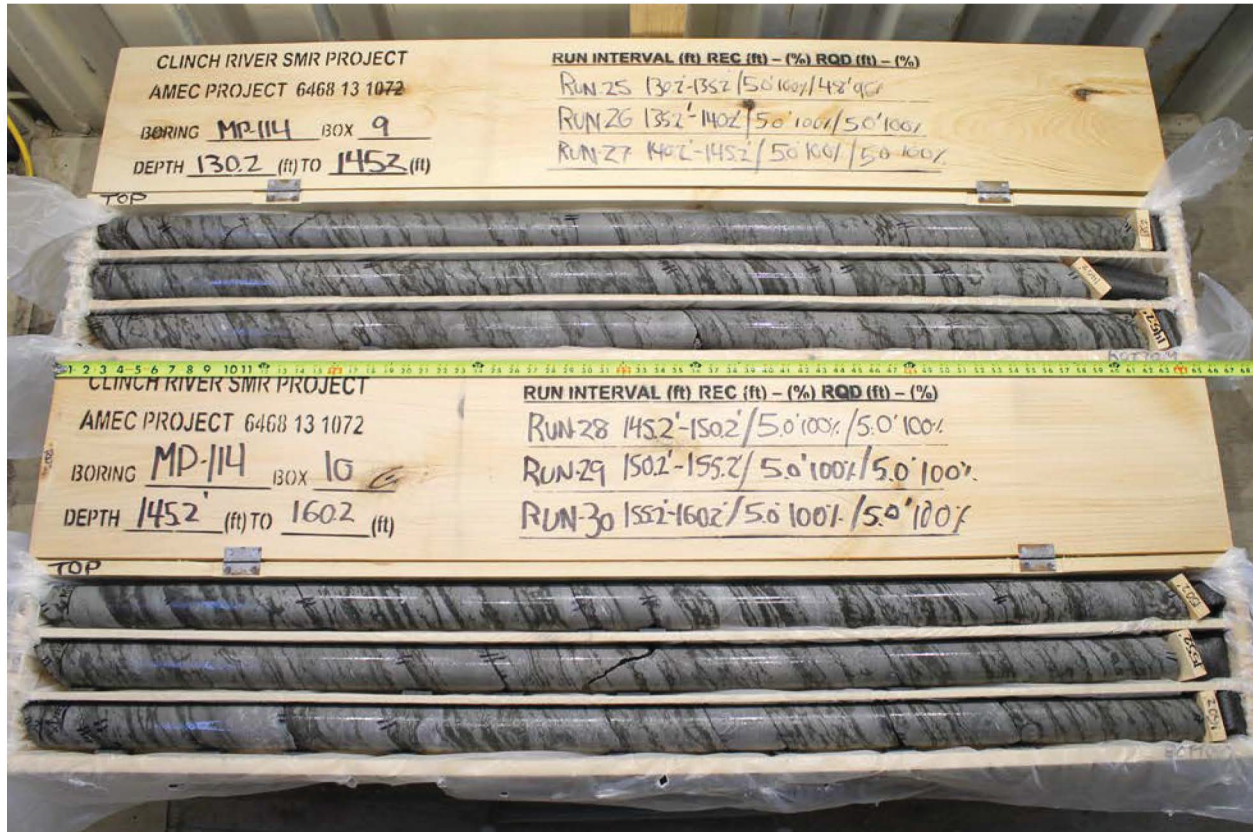 CLINCH RIVER SMR PROJECT
AMEC PROJECT 6468 13 1072
BORING MP-114 BOX 9
DEPTH 130.2 (ft) TO 145.2 (ft)
RUN INTERVAL (ft) REC (ft) – (%) RQD (ft) – (%)
RUN-25 130.2'-135.2'/5.0' 100%/4.8' 96%
RUN-26 135.2'-140.2'/5.0' 100%/5.0' 100%
RUN-27 140.2'-145.2'/5.0' 100%/5.0' 100%
TOP
145.2'
BOTTOM
1 2 3 4 5 6 7 8 9 10 11
CLINCH RIVER SMR PROJECT
AMEC PROJECT 6468 13 1072
BORING MP-114 BOX 10
DEPTH 145.2' (ft) TO 160.2 (ft)
RUN INTERVAL (ft) REC (ft) – (%) RQD (ft) – (%)
RUN-28 145.2'-150.2'/5.0' 100%/5.0' 100%
RUN-29 150.2'-155.2'/5.0' 100%/5.0' 100%
RUN-30 155.2'-160.2'/5.0' 100%/5.0' 100%
TOP
150.2'
155.2'
160.2'
BOTTOM